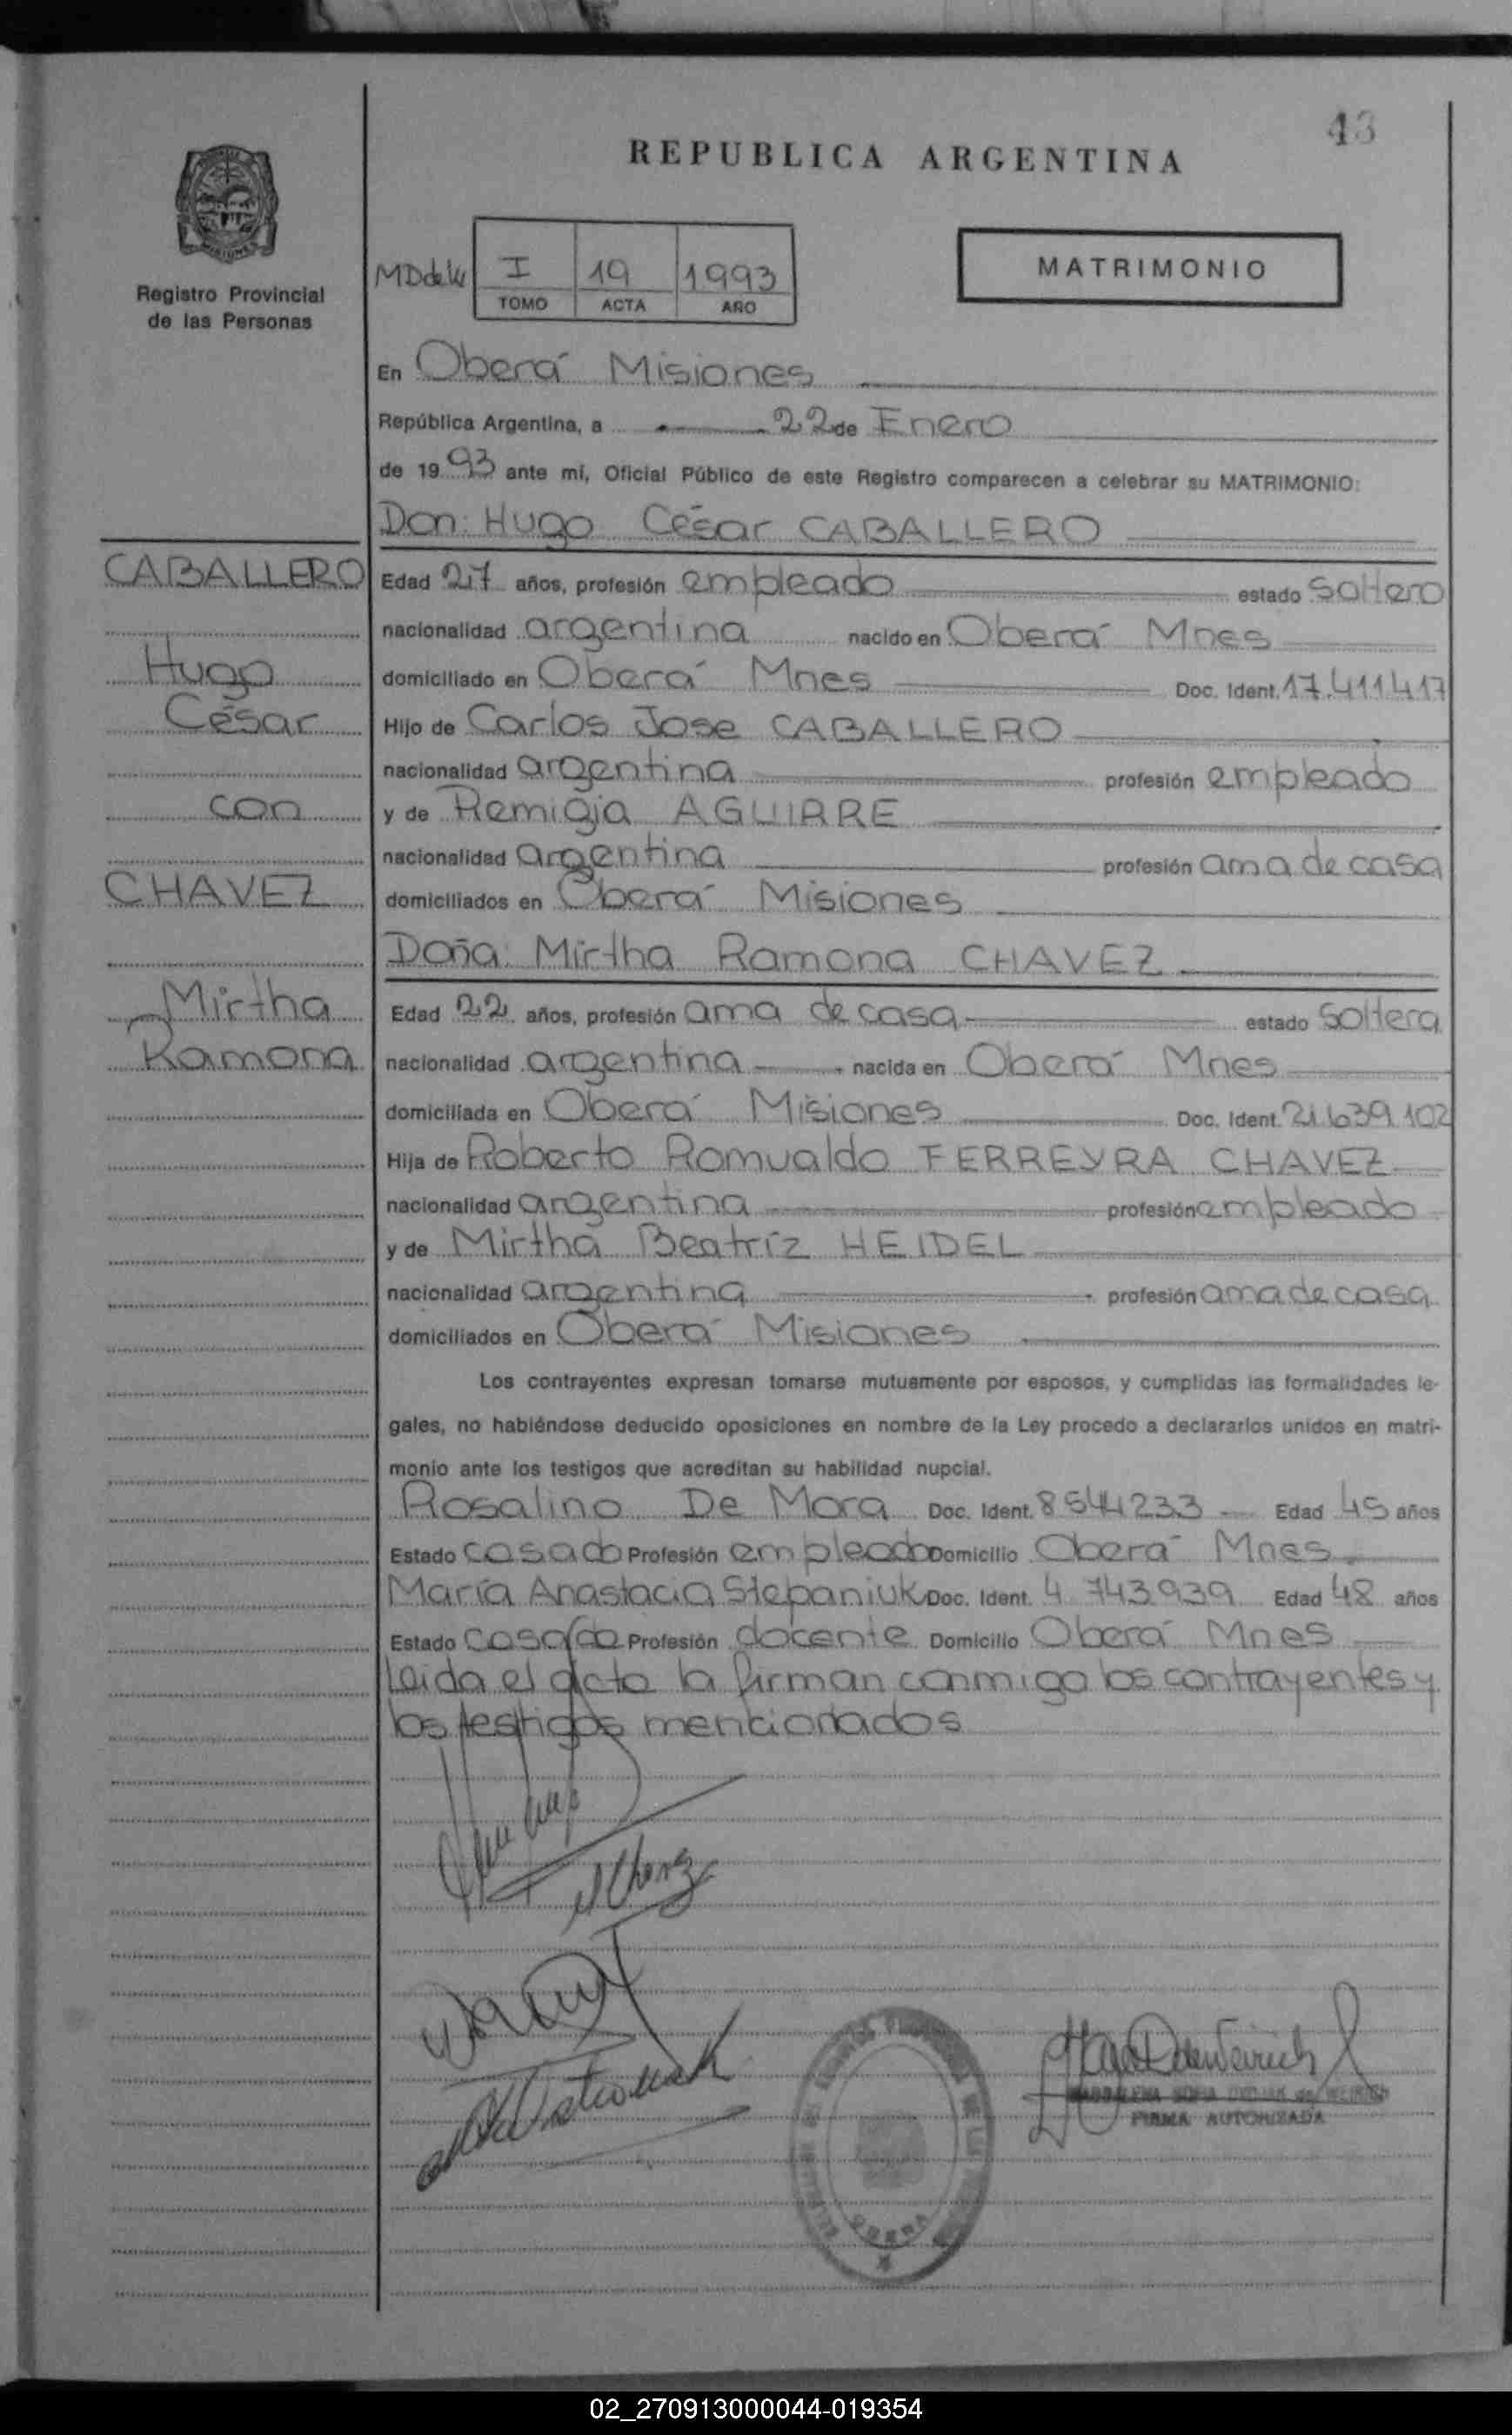 43
REPUBLICA ARGENTINA
Registro Provincial
de las Personas
I 19 1993
TOMO ACTA AÑO
MATRIMONIO
En Oberá Misiones
República Argentina, a 22 de Enero
de 1993 ante mí, Oficial Público de este Registro comparecen a celebrar su MATRIMONIO:
Don: Hugo César CABALLERO
CABALLERO
Hugo
César
con
CHAVEZ
Mirtha
Ramona
Edad 27 años, profesión empleado estado soltero
nacionalidad argentina nacido en Oberá Mnes
domiciliado en Oberá Mnes Doc. Ident. 17.411.417
Hijo de Carlos Jose CABALLERO
nacionalidad argentina profesión empleado
y de Remigia AGUIRRE
nacionalidad argentina profesión ama de casa
domiciliados en Oberá Misiones
Doña: Mirtha Ramona CHAVEZ
Edad 22 años, profesión ama de casa estado soltera
nacionalidad argentina nacida en Oberá Mnes
domiciliada en Oberá Misiones Doc. Ident. 21.639.102
Hija de Roberto Romualdo FERREYRA CHAVEZ
nacionalidad argentina profesión empleado
y de Mirtha Beatríz HEIDEL
nacionalidad argentina profesión ama de casa
domiciliados en Oberá Misiones
Los contrayentes expresan tomarse mutuamente por esposos, y cumplidas las formalidades le-
gales, no habiéndose deducido oposiciones en nombre de la Ley procedo a declararlos unidos en matri-
monio ante los testigos que acreditan su habilidad nupcial.
Rosalino De Mora Doc. Ident. 8544233 Edad 45 años
Estado casado Profesión empleado Domicilio Oberá Mnes
María Anastacia Stepaniuk Doc. Ident. 4 743939 Edad 48 años
Estado Profesión docente Domicilio Oberá Mnes
Leida el acta la firman conmigo los contrayentes y
los testigos mencionados
FIRMA AUTORIZADA
OBERA
02_270913000044-019354